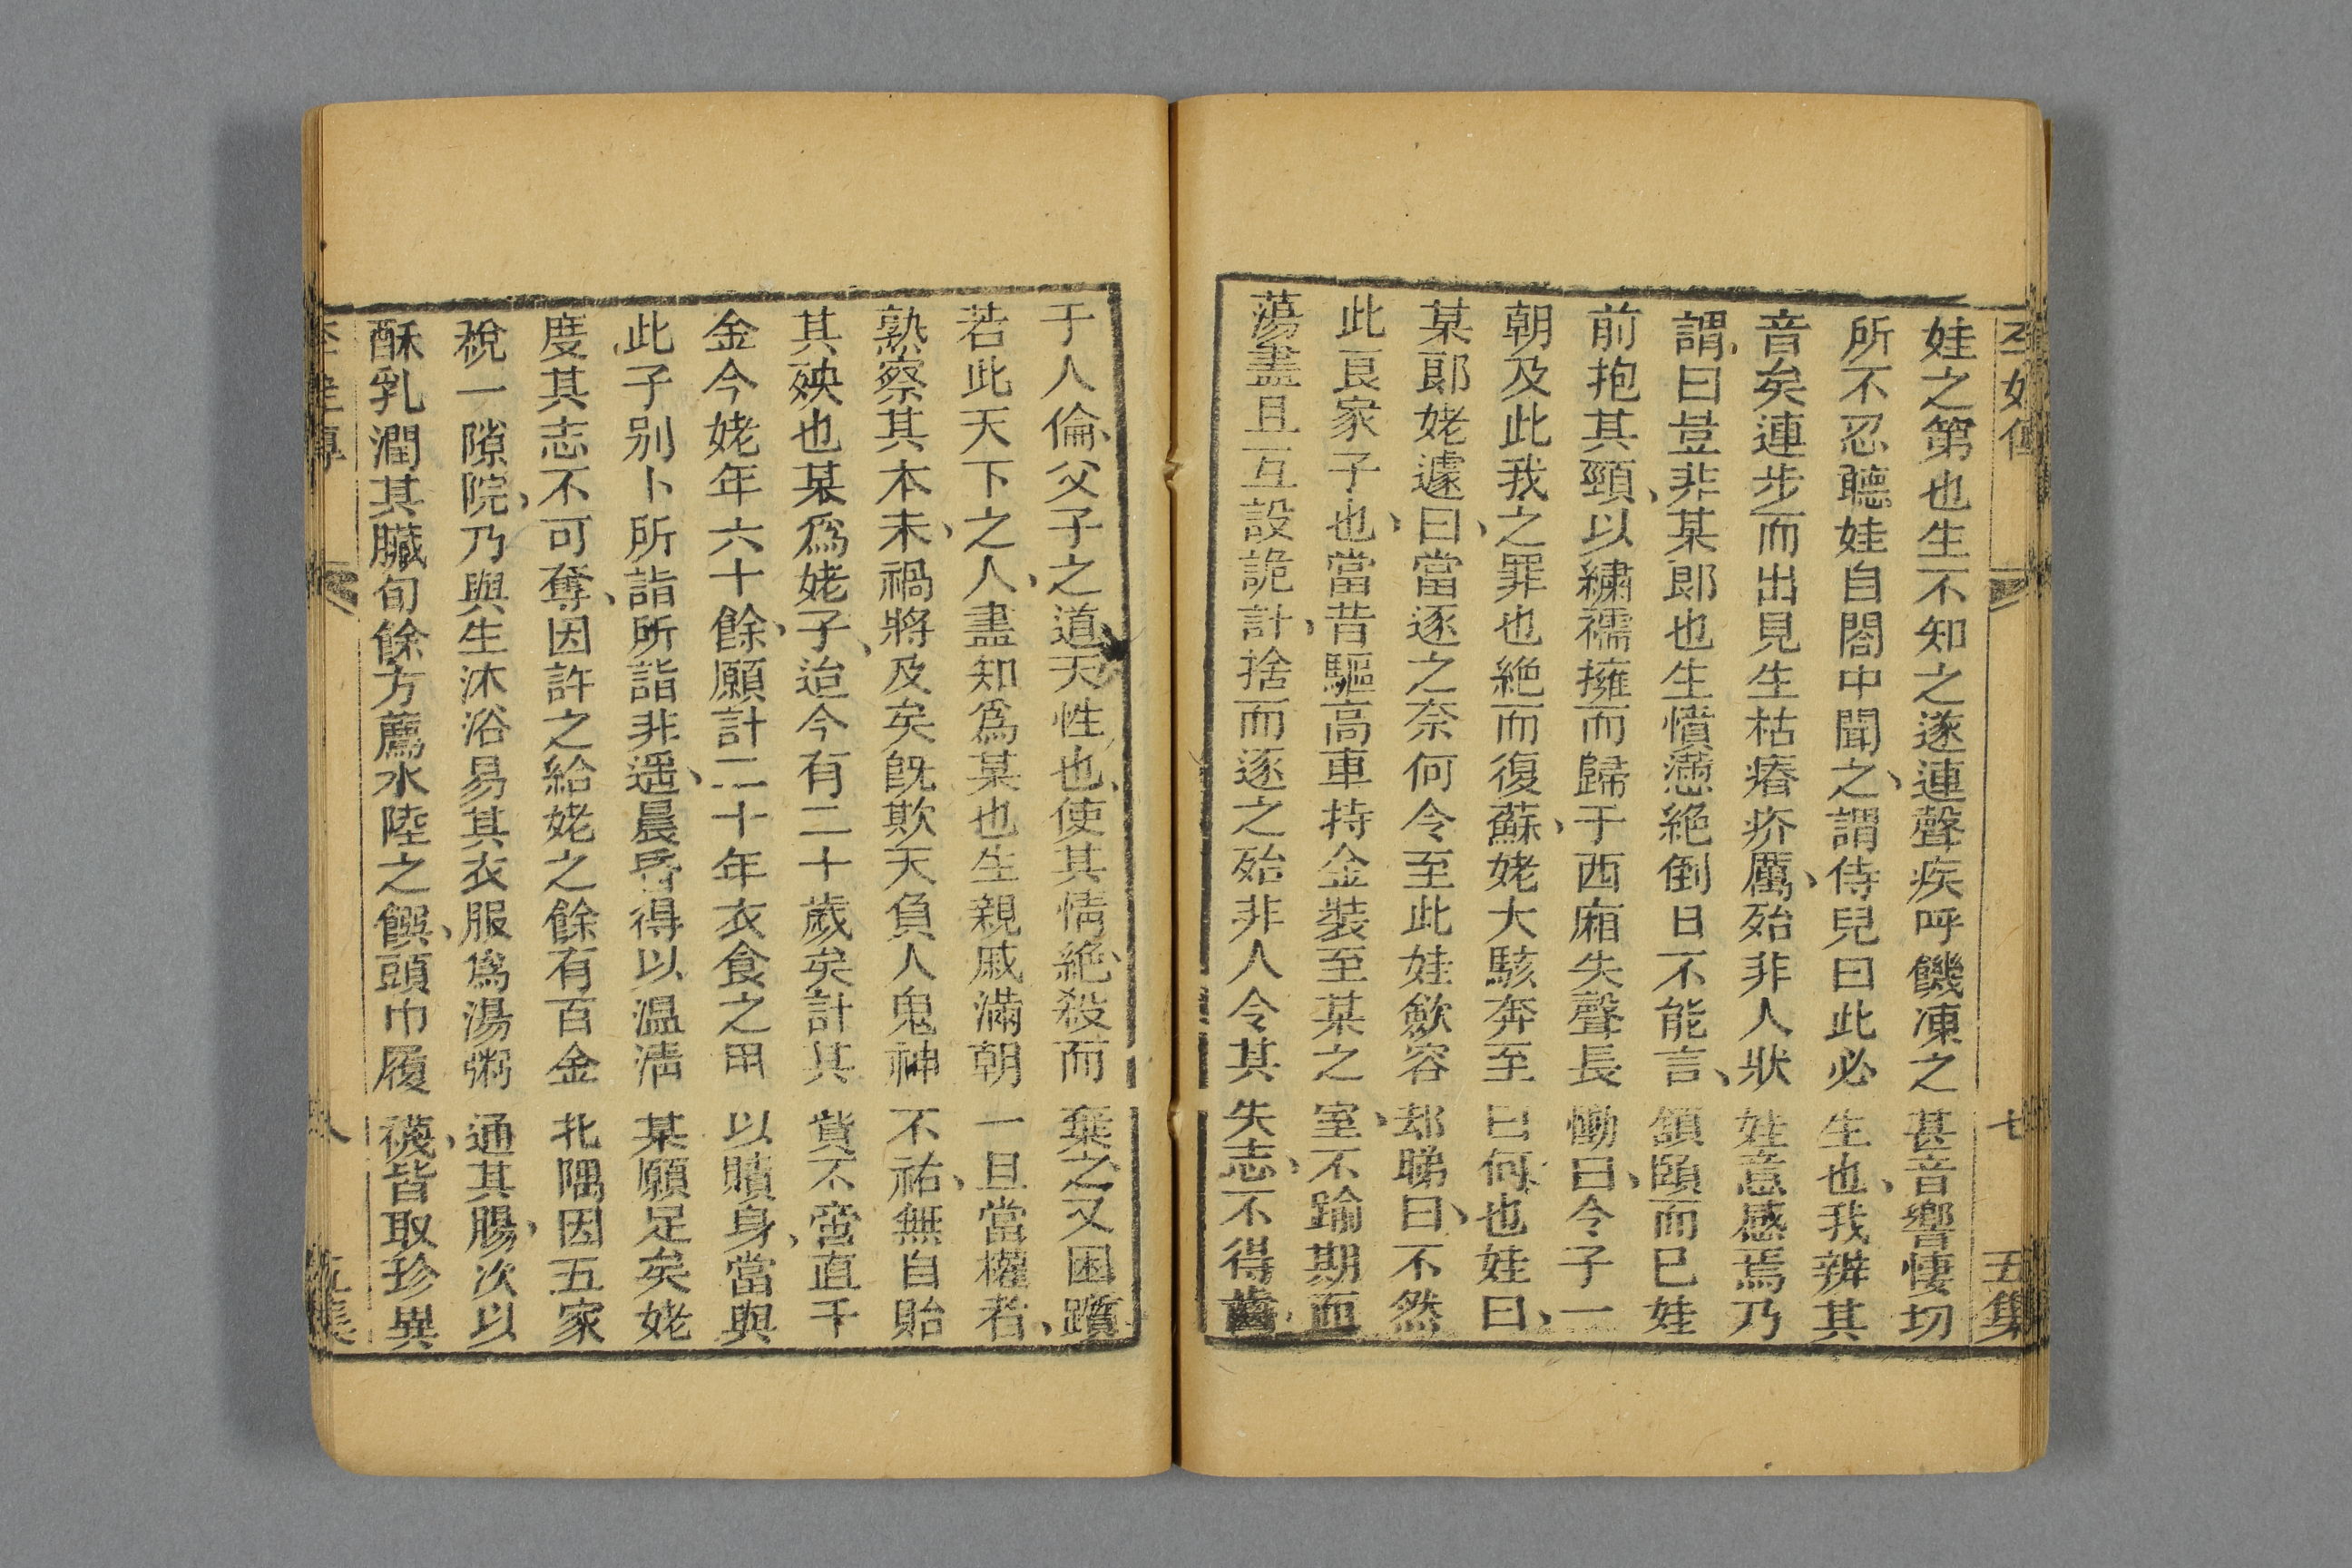 娃之第也生不知之遂連聲疾呼饑凍之甚音響悽切
所不忍聽娃自閤中聞之、謂侍兒曰此必生也、我辨其
音矣連步而出見生枯瘠疥厲、殆非人狀娃意感焉乃
謂、曰豈非某郎也生憤懣絕倒日不能言、頷頤而已娃
前抱其頸、以繡襦擁而歸于西廂失聲長慟曰、令子一
朝及此我之罪也絕而復蘇、姥大駭奔至曰何也娃曰、
某郎姥遽曰、當逐之奈何令至此娃歛容却睇曰、不然
此良家子也、當昔驅高車持金裝至某之室、不踰期而
蕩盡且互設詭計、捨而逐之殆非人令其失志、不得齒
七
五集
于人倫、父子之道、天性也、使其情絕、殺而棄之、又困躓
若此天下之人、盡知爲某也生親戚滿朝一旦當權者、
熟察其本末、禍將及矣旣欺天負人鬼神不祐、無自貽
其殃也某爲姥子、迨今有二十歲矣計其貲不啻直千
金今姥年六十餘、願計二十年衣食之用以贖身、當與
此子别卜所詣所詣非遥、晨昏得以温凊某願足矣姥
度其志不可奪、因許之給姥之餘有百金北隅因五家
稅一隙院、乃與生沐浴易其衣服爲湯粥通其腸、次以
酥乳潤其臟旬餘方薦水陸之饌、頭巾履襪、皆取珍異